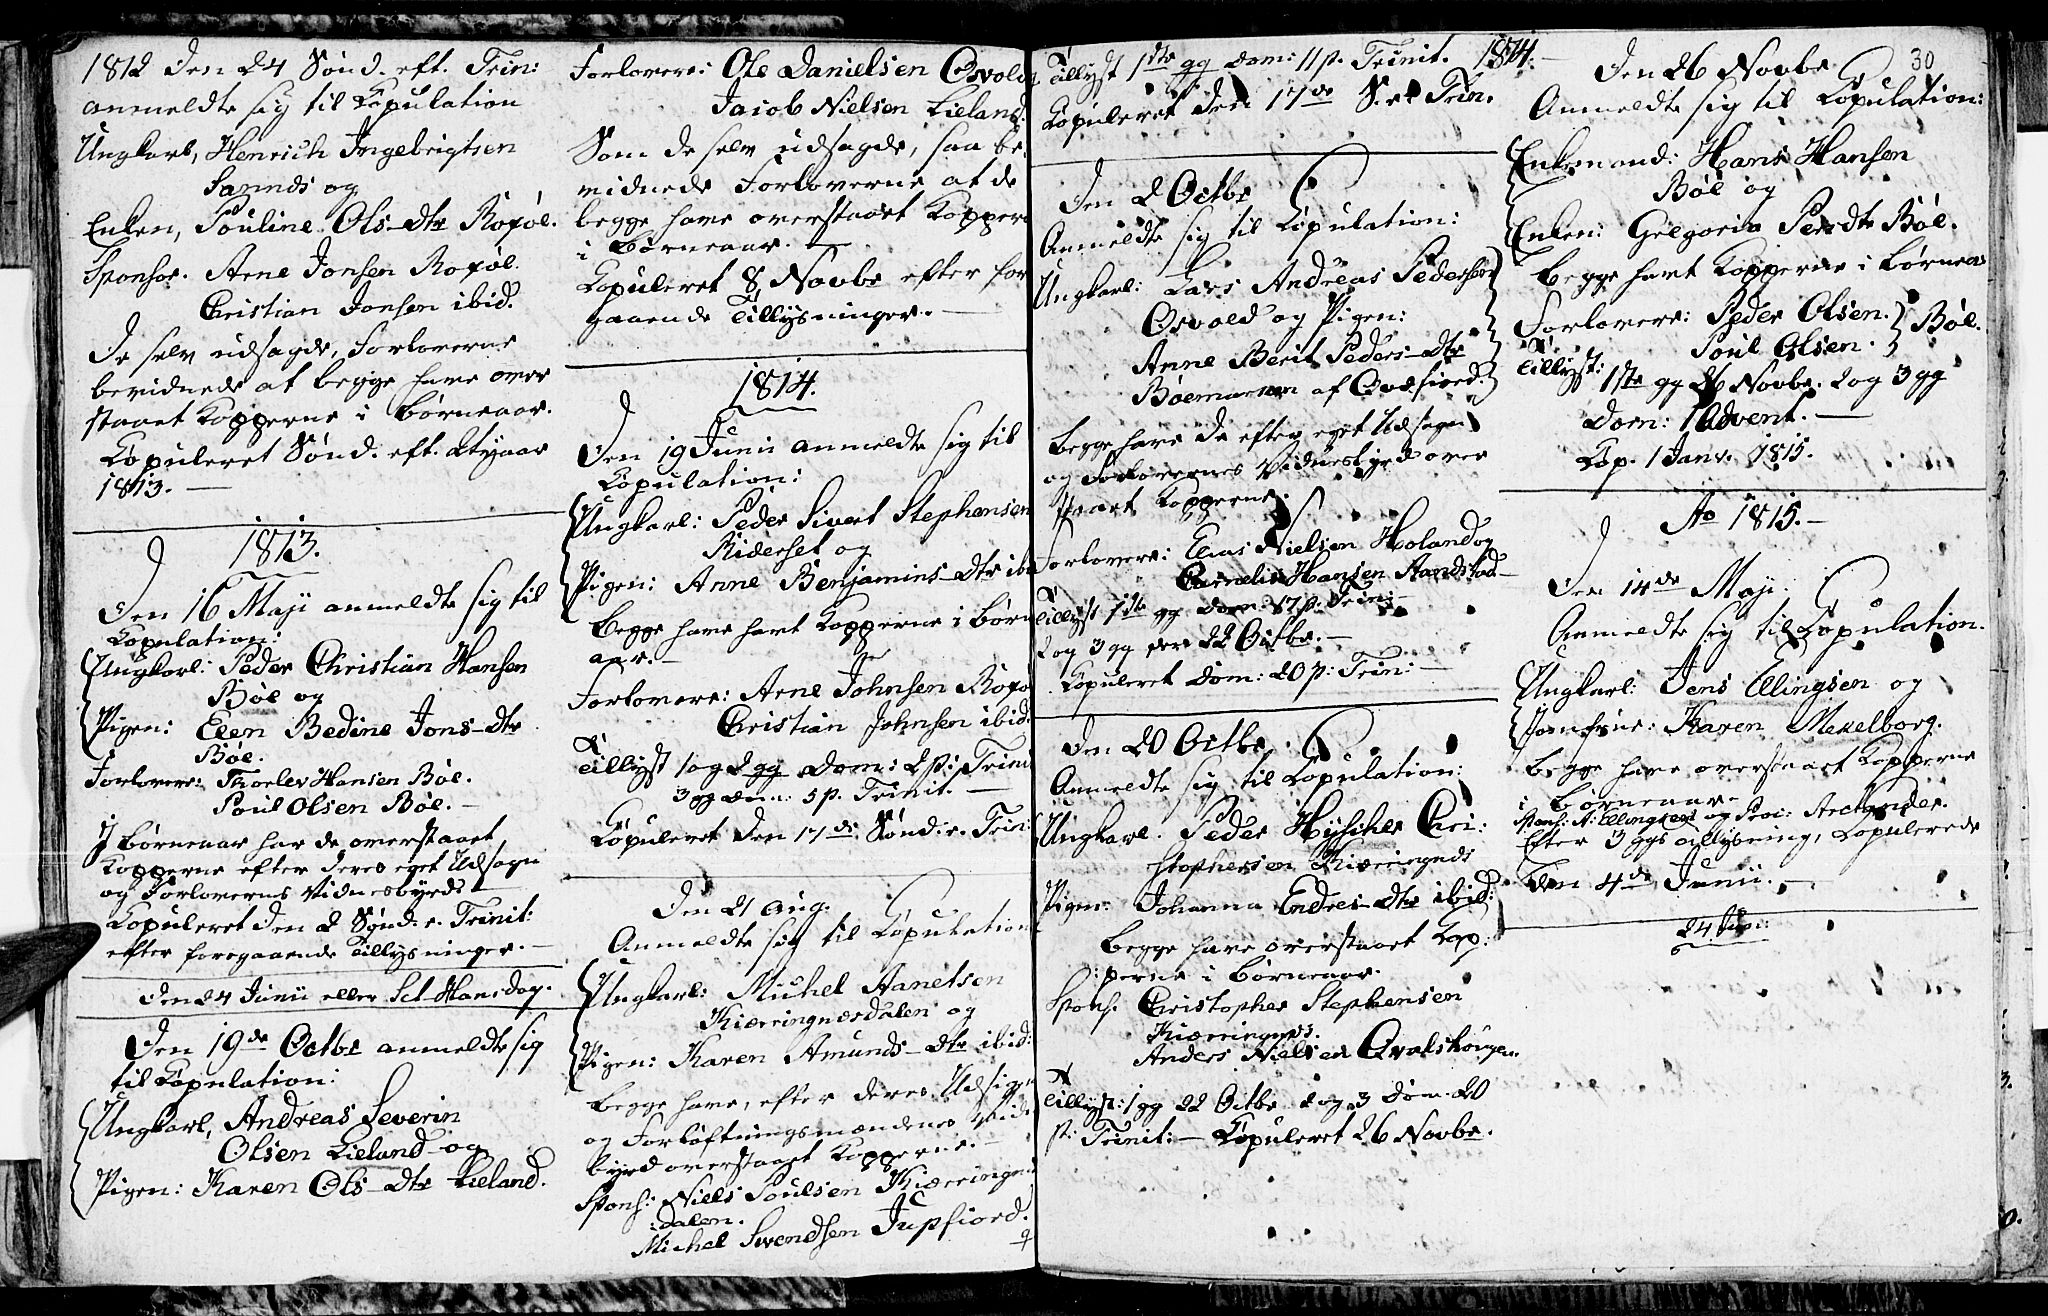 1812 Den 24 Sønd. eft. Trin:
anmeldte sig til Copulation
Ungkarl, Henrich Ingebrigtsen
Sannds og
Enken, Pouline Ols-dtr Roføl.
Sponsor. Arne Jonsen Roføl.
Christian Jonsen ibid.
De selv udsagde, Forloverne
bevidnede at begge have over
staaet Kopperne i Børneaar.
Copuleret Sønd. eft. Nytaar
1813.
1813.
Den 16 Maji anmeldte sig til
Copulation:
Ungkarl: Peder Christian Hansen
Bøl og
Pigen: Elen Bedine Jons-dtr
Bøl.
Forlovere: Thorlev Hansen Bøl.
Poul Olsen Bøl.
I Børneaar har de overstaaet
Kopperne efter deres eget Udsagn
og Forlovernes Vidnesbyrd.
Copuleret Den 2 Sønd. e. Trinit:
efter foregaaende Tillysninger.
Den 24 Junii eller Sct Hansdag.
Den 19de Octbr anmeldte sig
til Copulation:
Ungkarl, Andreas Severin
Olsen Lieland og
Pigen: Karen Ols-dtr Lieland.
Forlovere: Ole Danielsen Osvold
Jacob Nielsen Lieland.
Som de selv udsagde, saa be-
vidnede Forloverne at de
begge have overstaaet Kopper
i Børneaar.
Copuleret 8 Novbr efter for
gaaende Tillysninger.
1814.
Den 19 Junii anmeldte sig til
Copulation:
Ungkarl: Peder Sivert Stephensen
Riderset og
Pigen: Anne Benjamins-dtr ibi
Begge have havt Kopperne i Børn
aar.
Forlovere: Arne Johnsen Rofø
Christian Johnsen ibid.
Tillyst 1 og 2 gg Dom: 2 p: Trinit
3 gg Dom: 5 p. Trinit.
Copuleret Den 17de Sønd. e. Trin:
Den 21 Aug:
Anmeldte sig til Copulation
Ungkarl: Michel Aanetsen
Kierringnesdalen og
Pigen: Karen Amunds-dtr ibid:
Begge have, efter deres Udsigen
og Forløftningsmændenes Vid
byrd overstaaet Kopperne.
Spons: Niels Poulsen Kierringne
:dalen.
Michel Svendsen Jupfiord.
Tillyst 1ste gg Dom: 11 p. Trinit. 1814.
Copuleret Den 17de S. e. Trin.
Den 2 Octbr
Anmeldte sig til Copulation:
Ungkarl: Lars Andreas Pedersen
Osvold og Pigen:
Anne Berit Peders-dtr
Bøemarken af Qvæfiord.
Begge have de efter eget Udsagn
og Forlovernes Vidnesbyrd over
staaet Kopperne.
Forlovere: Elias Nielsen Holand og
Cornelius Hansen Sandstad
Tillyst 1ste gg Dom: 17 p. Trin:
2 og 3 gg den 22 Octbr.
Copuleret Dom: 20 p: Trin:
Den 20 Octbr.
Anmeldte sig til Copulation:
Ungkarl. Peder Hyscher Chri:
stophersen Kierringnes
Pigen: Johanna Endres-dtr ibid:
Begge have overstaaet Kop:
:perne i Børneaar.
Spons. Christopher Stephensen
Kierringnes.
Anders Nielsen Qvalshougen.
Tillyst: 1 gg 22 Octbr 2 og 3 Dom. 20
p: Trinit: Copuleret 26 Novbr.
30
Den 26 Novbr
Anmeldte sig til Copulation:
Enkemand: Hans Hansen
Bøl og
Enken: Gregoria Pedrdtr Bøl.
Begge havt Kopperne i Børneaa
Forlovere: Peder Olsen.
Poul Olsen. Bøl.
Tillyst:
1ste gg 26 Novbr. 2 og 3 gg
Dom: 1 Advent.
Cop. 1 Janv. 1815.
Ao 1815.
Den 14de Maji.
Anmeldte sig til Copulation.
Ungkarl: Jens Ellingsen og
Jomfrue: Karen Mekelborg.
Begge have overstaaet Kopperne
i Børneaar.
Spons: A: Ellingsen og Proc: Arctander.
Efter 3 ggs Tillysning, Copulerede
Den 4de Junii.
24 Jun: